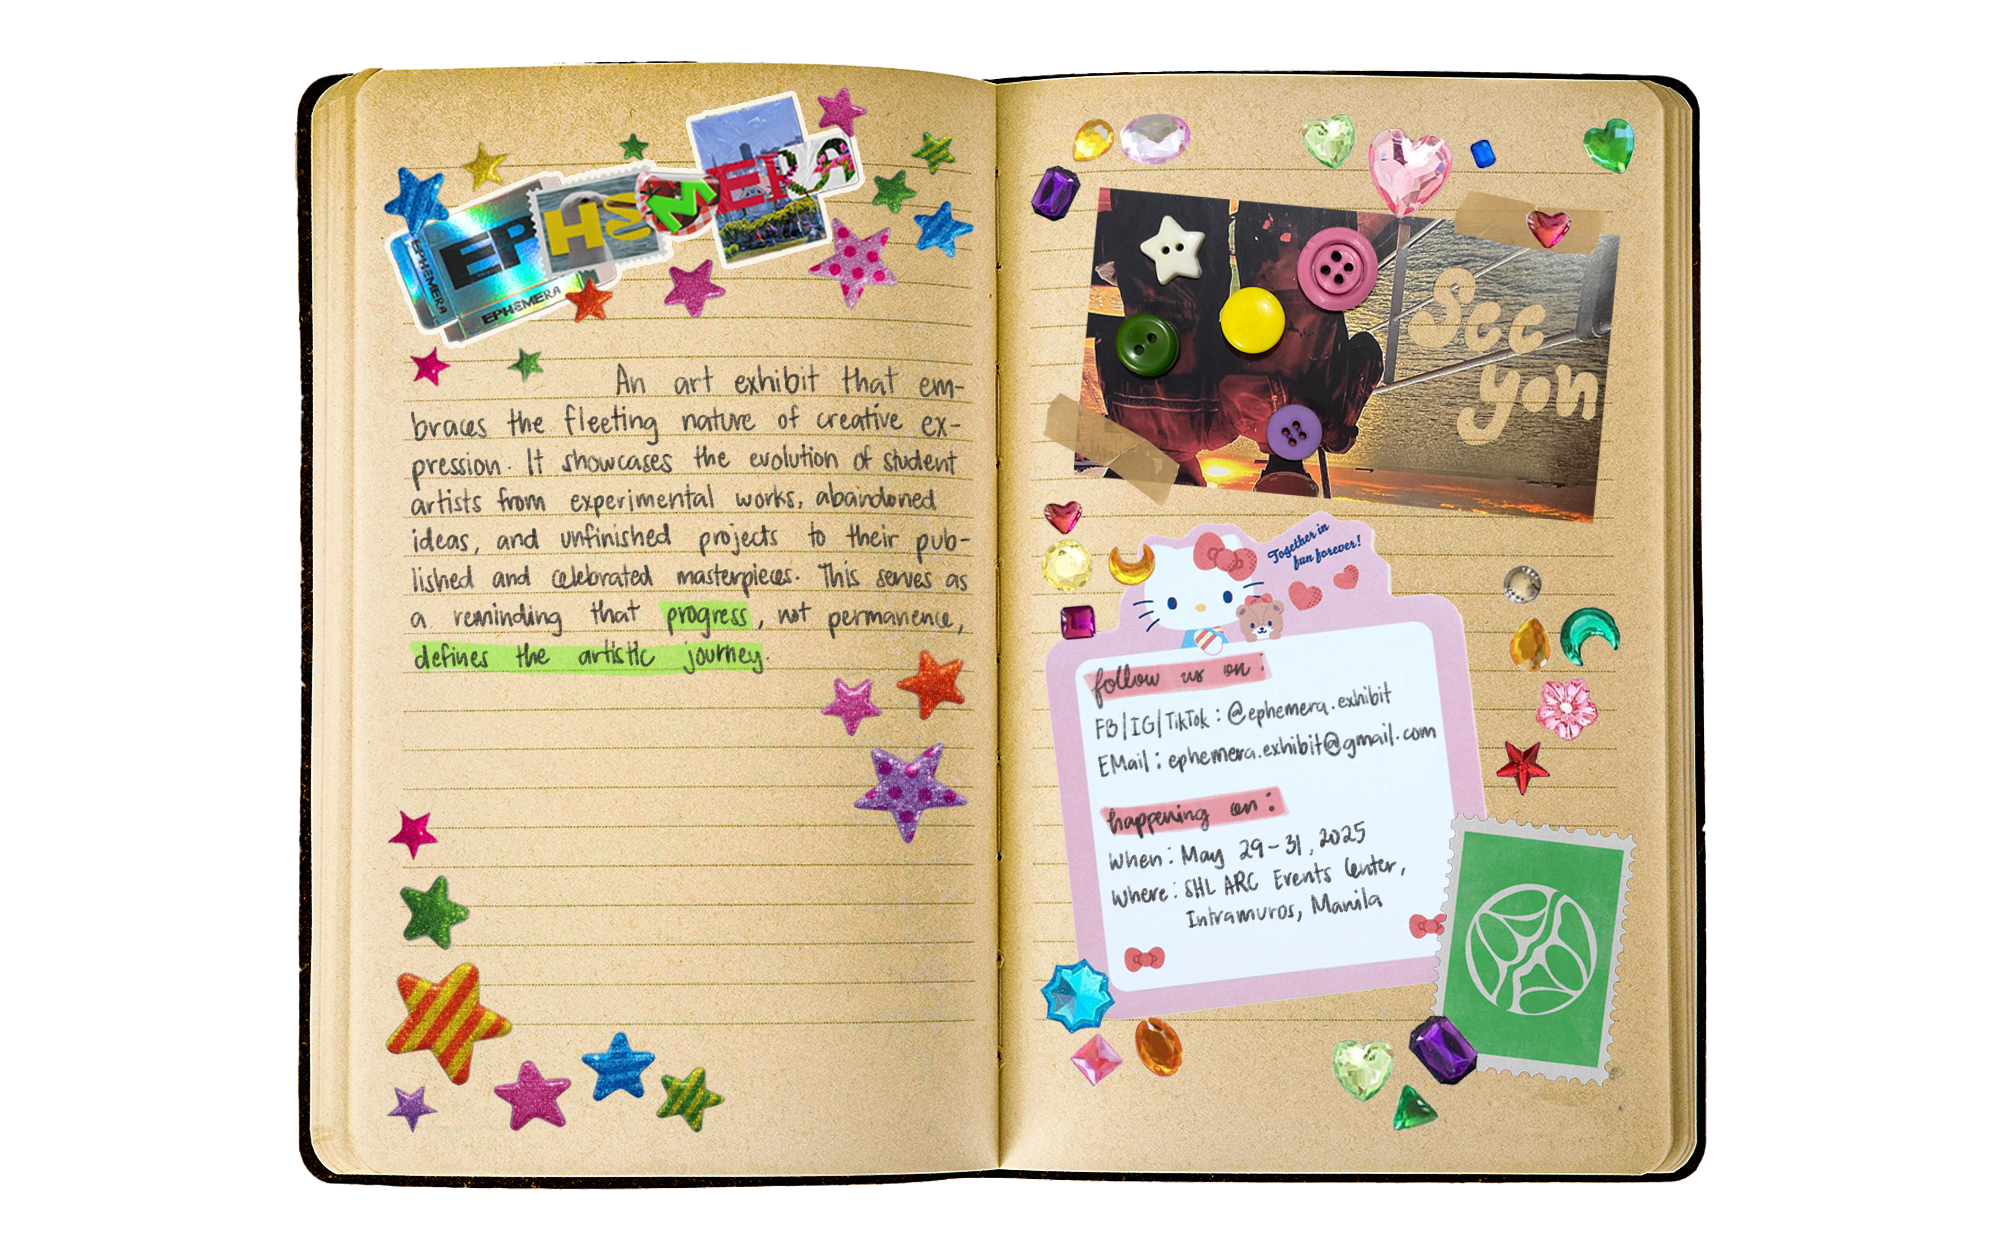 EPHEMERA
EPHEMERA
EPHEMERA
An art exhibit that em-
braces the fleeting nature of creative ex-
pression. It showcases the evolution of student
artists from experimental works, abandoned
ideas, and unfinished projects to their pub-
lished and celebrated masterpieces. This serves as
a reminding that progress, not permanence,
defines the artistic journey.
See
you
Together in
fun forever!
follow us on:
FB/IG/TikTok: @ephemera.exhibit
EMail: ephemera.exhibit@gmail.com
happening on:
When: May 29-31, 2025
Where: SHL ARC Events Center,
Intramuros, Manila